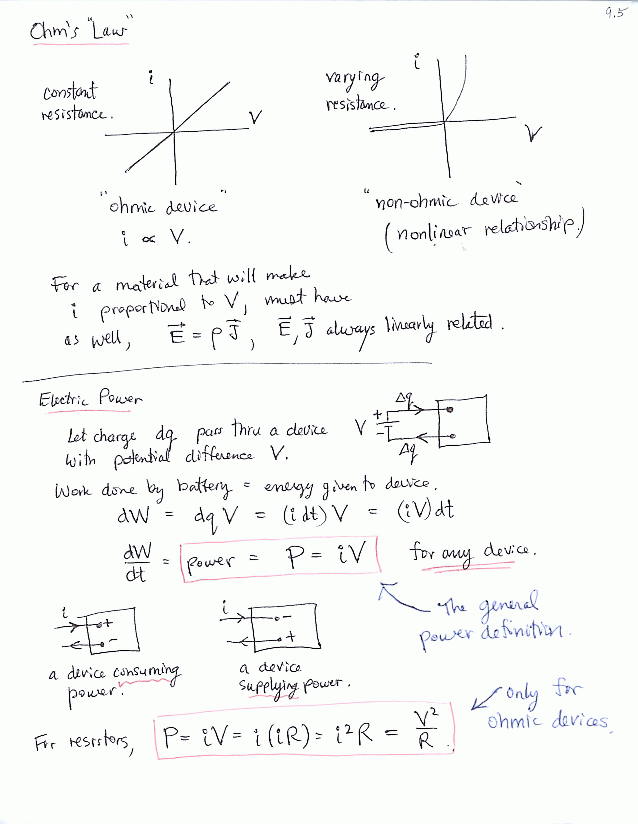 9.5
Ohm's "Law"
constant
resistance.
i
V
"ohmic device"
i ∝ V.
varying
resistance.
i
V
"non-ohmic device"
(nonlinear relationship.)
For a material that will make
i proportional to V, must have
as well, E⃗ = ρJ⃗, E⃗, J⃗ always linearly related.
Electric Power
Let charge dq pass thru a device
with potential difference V.
V + - Δq
Δq
Work done by battery = energy given to device.
dW = dq V = (i dt) V = (iV) dt
dW/dt = power = P = iV for any device.
The general
power definition.
i + -
a device consuming
power.
i - +
a device
supplying power.
only for
ohmic devices.
For resistors, P = iV = i(iR) = i²R = V²/R.